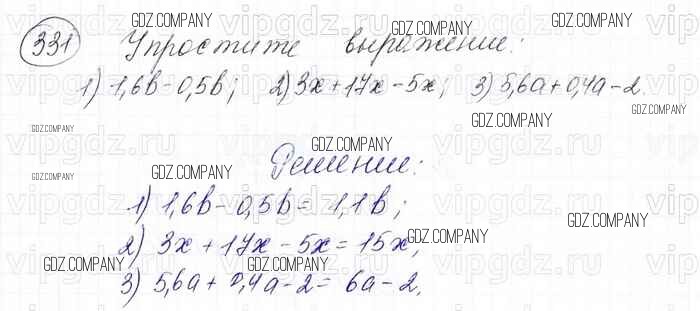 331 Упростите выражение:
1) 1,6b - 0,5b; 2) 3x + 17x - 5x; 3) 5,6a + 0,4a - 2.
Решение:
1) 1,6b - 0,5b = 1,1b;
2) 3x + 17x - 5x = 15x;
3) 5,6a + 0,4a - 2 = 6a - 2.
GDZ.COMPANY
vipgdz.ru